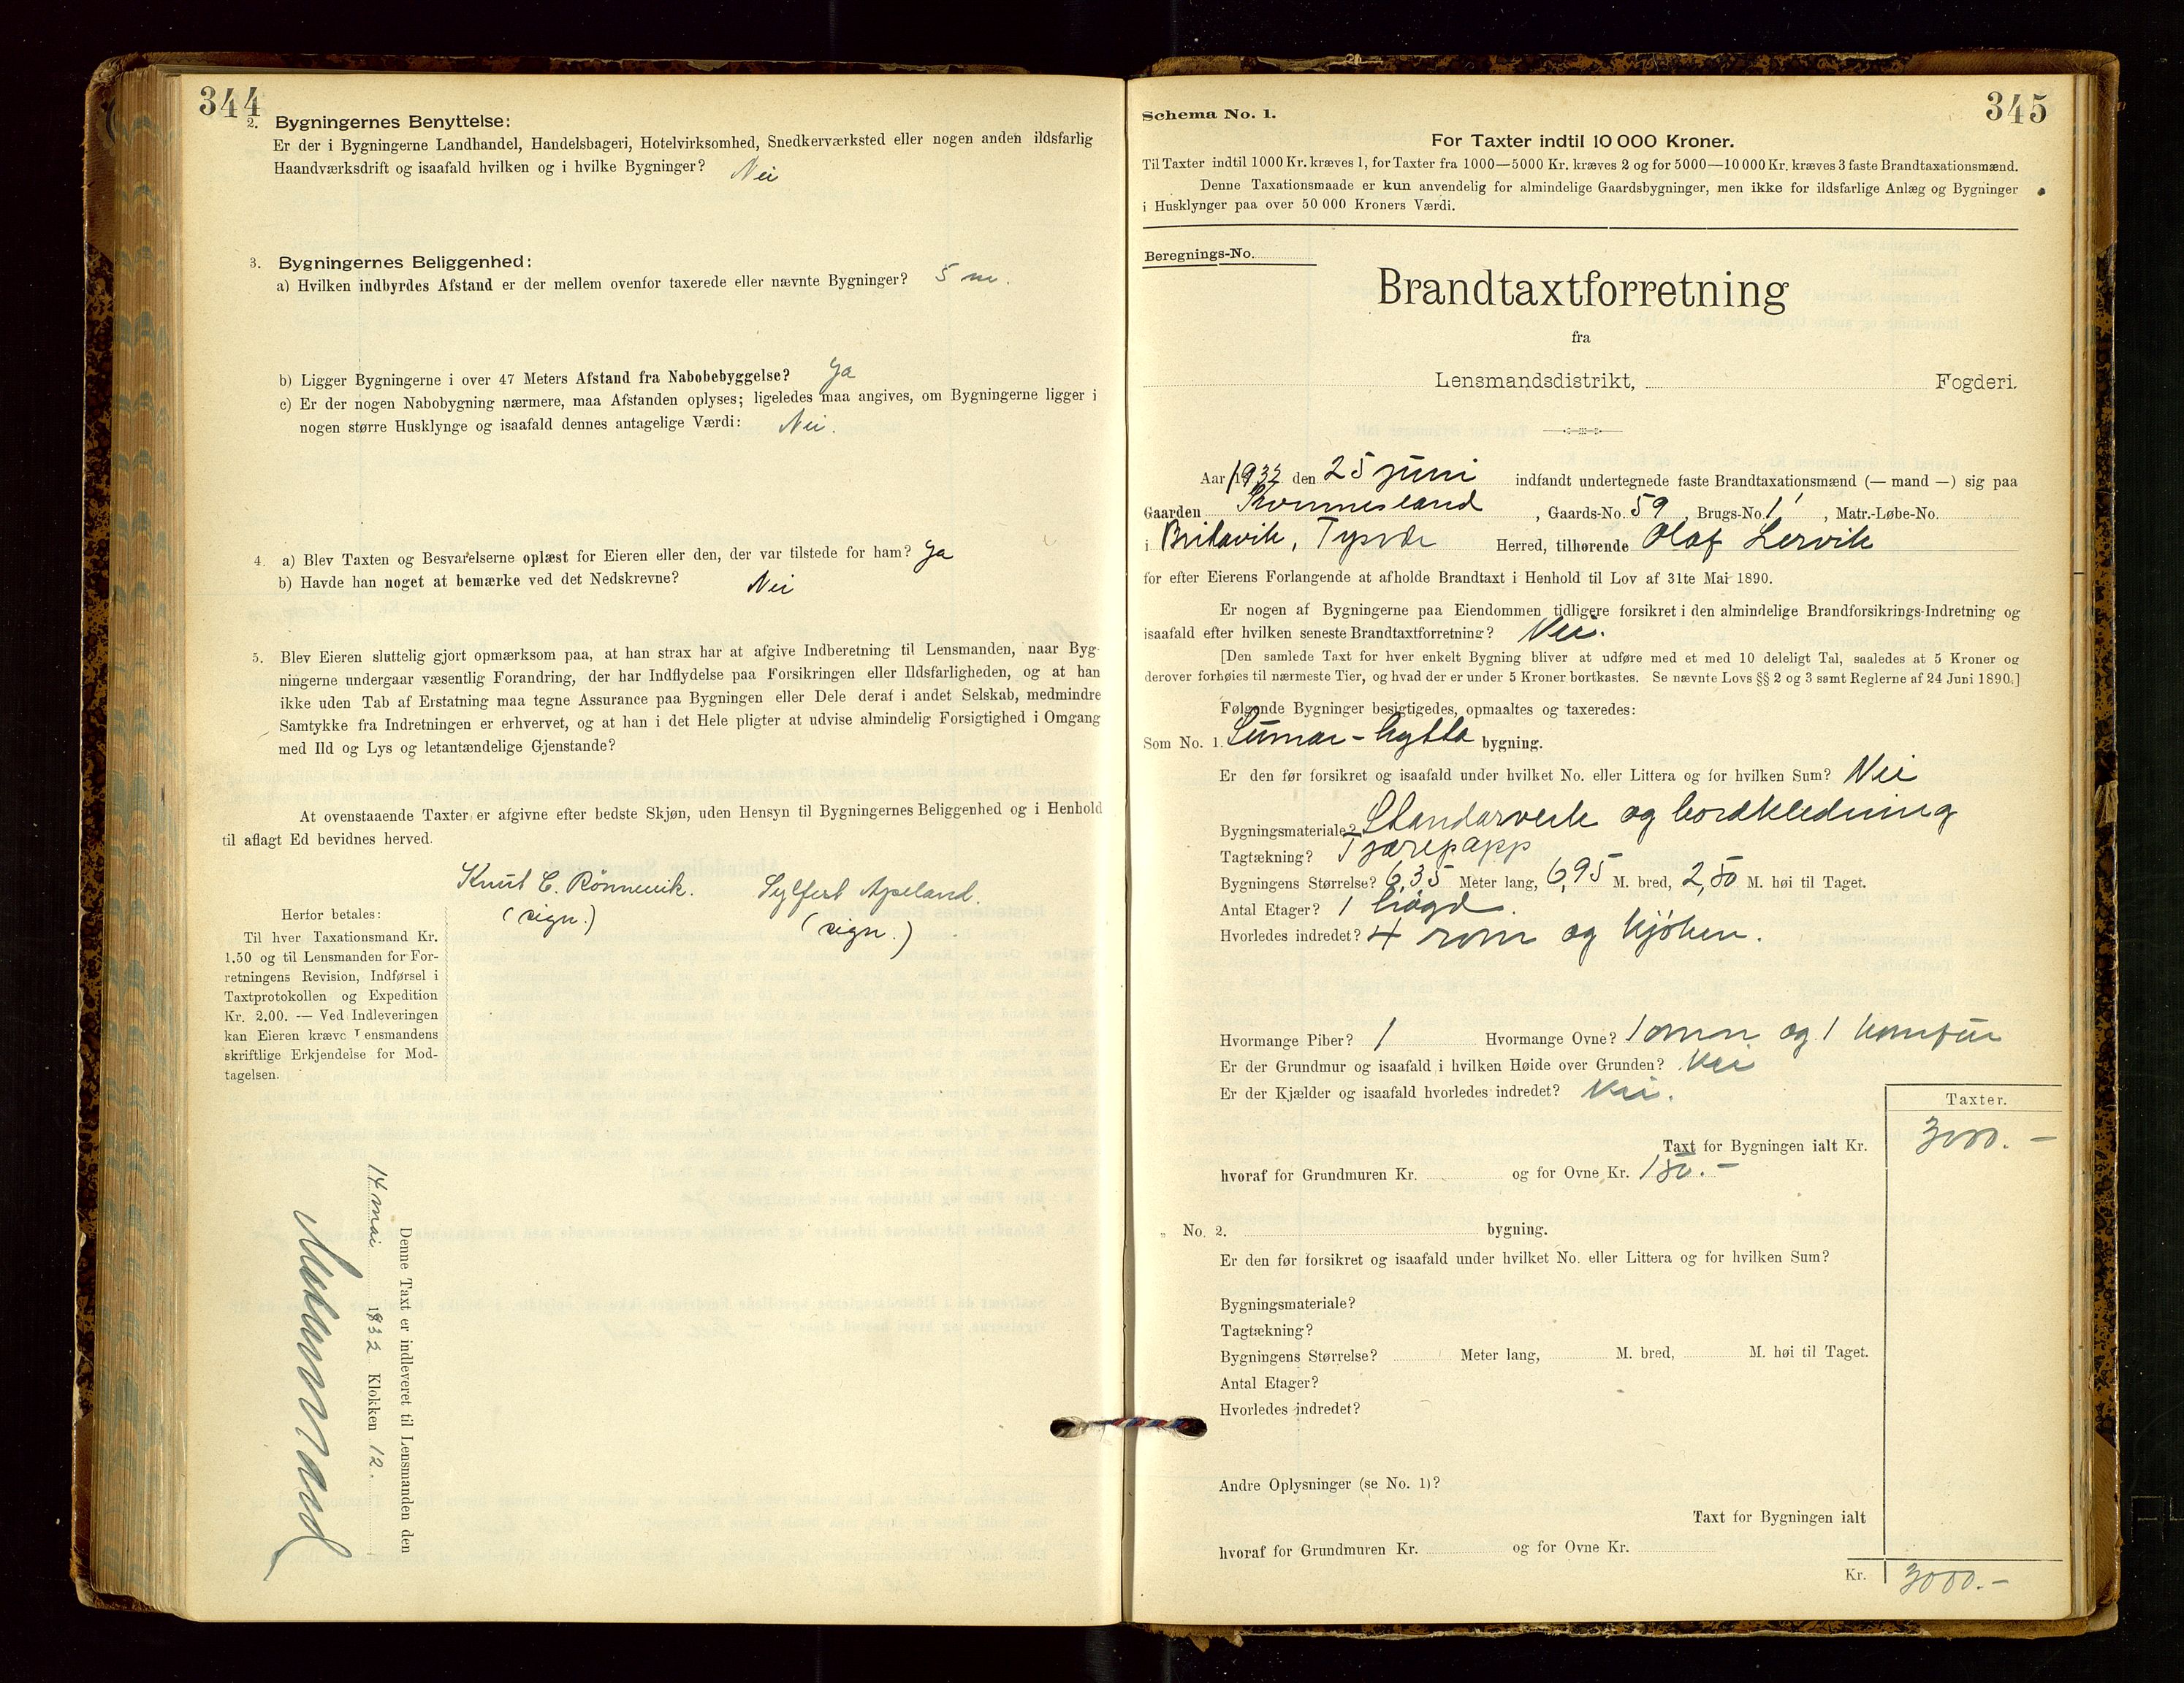 344
2. Bygningernes Benyttelse:
Er der i Bygningerne Landhandel, Handelsbageri, Hotelvirksomhed, Snedkerværksted eller nogen anden ildsfarlig
Haandværksdrift og isaafald hvilken og i hvilke Bygninger? Nei
3. Bygningernes Beliggenhed:
a) Hvilken indbyrdes Afstand er der mellem ovenfor taxerede eller nævnte Bygninger? 5 m.
b) Ligger Bygningerne i over 47 Meters Afstand fra Nabobebyggelse? Ja
c) Er der nogen Nabobygning nærmere, maa Afstanden oplyses; ligeledes maa angives, om Bygningerne ligger i
nogen større Husklynge og isaafald dennes antagelige Værdi: Nei.
4. a) Blev Taxten og Besvarelserne oplæst for Eieren eller den, der var tilstede for ham? Ja
b) Havde han noget at bemærke ved det Nedskrevne? Nei
5. Blev Eieren sluttelig gjort opmærksom paa, at han strax har at afgive Indberetning til Lensmanden, naar Byg-
ningerne undergaar væsentlig Forandring, der har Indflydelse paa Forsikringen eller Ildsfarligheden, og at han
ikke uden Tab af Erstatning maa tegne Assurance paa Bygningen eller Dele deraf i andet Selskab, medmindre
Samtykke fra Indretningen er erhvervet, og at han i det Hele pligter at udvise almindelig Forsigtighed i Omgang
med Ild og Lys og letantændelige Gjenstande?
At ovenstaaende Taxter er afgivne efter bedste Skjøn, uden Hensyn til Bygningernes Beliggenhed og i Henhold
til aflagt Ed bevidnes herved.
Knut C. Rönnevik. Sylfest Apeland.
(sign.) (sign.)
Herfor betales:
Til hver Taxationsmand Kr.
1.50 og til Lensmanden for For-
retningens Revision, Indførsel i
Taxtprotokollen og Expedition
Kr. 2.00. — Ved Indleveringen
kan Eieren kræve Lensmandens
skriftlige Erkjendelse for Mod-
tagelsen.
Denne Taxt er indleveret til Lensmanden den
14 mai 1932 Klokken 12.
345
Schema No. 1.
For Taxter indtil 10 000 Kroner.
Til Taxter indtil 1000 Kr. kræves 1, for Taxter fra 1000—5000 Kr. kræves 2 og for 5000—10 000 Kr. kræves 3 faste Brandtaxationsmænd.
Denne Taxationsmaade er kun anvendelig for almindelige Gaardsbygninger, men ikke for ildsfarlige Anlæg og Bygninger
i Husklynger paa over 50 000 Kroners Værdi.
Beregnings-No.
Brandtaxtforretning
fra
Lensmandsdistrikt, Fogderi.
Aar 1932 den 25 juni indfandt undertegnede faste Brandtaxationsmænd (— mand —) sig paa
Gaarden , Gaards-No. 59, Brugs-No. 1, Matr.-Løbe-No.
i , Tysvær Herred, tilhørende Olaf Lervik
for efter Eierens Forlangende at afholde Brandtaxt i Henhold til Lov af 31te Mai 1890.
Er nogen af Bygningerne paa Eiendommen tidligere forsikret i den almindelige Brandforsikrings-Indretning og
isaafald efter hvilken seneste Brandtaxtforretning? Nei.
[Den samlede Taxt for hver enkelt Bygning bliver at udføre med et med 10 deleligt Tal, saaledes at 5 Kroner og
derover forhøies til nærmeste Tier, og hvad der er under 5 Kroner bortkastes. Se nævnte Lovs §§ 2 og 3 samt Reglerne af 24 Juni 1890.]
Følgende Bygninger besigtigedes, opmaaltes og taxeredes:
Som No. 1. Sumar-hytta bygning.
Er den før forsikret og isaafald under hvilket No. eller Littera og for hvilken Sum? Nei
Bygningsmateriale? Standarverk og bordkledning
Tagtækning? Tjærepapp
Bygningens Størrelse? 6,35 Meter lang, 6,95 M. bred, 2,50 M. høi til Taget.
Antal Etager? 1 høgd.
Hvorledes indredet? 4 rom og kjøken.
Hvormange Piber? 1 Hvormange Ovne? 1 omn og 1 komfur
Er der Grundmur og isaafald i hvilken Høide over Grunden? Nei
Er der Kjælder og isaafald hvorledes indredet? Nei.
Taxter.
Taxt for Bygningen ialt Kr. 3000.-
hvoraf for Grundmuren Kr. og for Ovne Kr. 150.-
„ No. 2. bygning.
Er den før forsikret og isaafald under hvilket No. eller Littera og for hvilken Sum?
Bygningsmateriale?
Tagtækning?
Bygningens Størrelse? Meter lang, M. bred, M. høi til Taget.
Antal Etager?
Hvorledes indredet?
Andre Oplysninger (se No. 1)?
Taxt for Bygningen ialt
hvoraf for Grundmuren Kr. og for Ovne Kr.
Kr. 3000.-